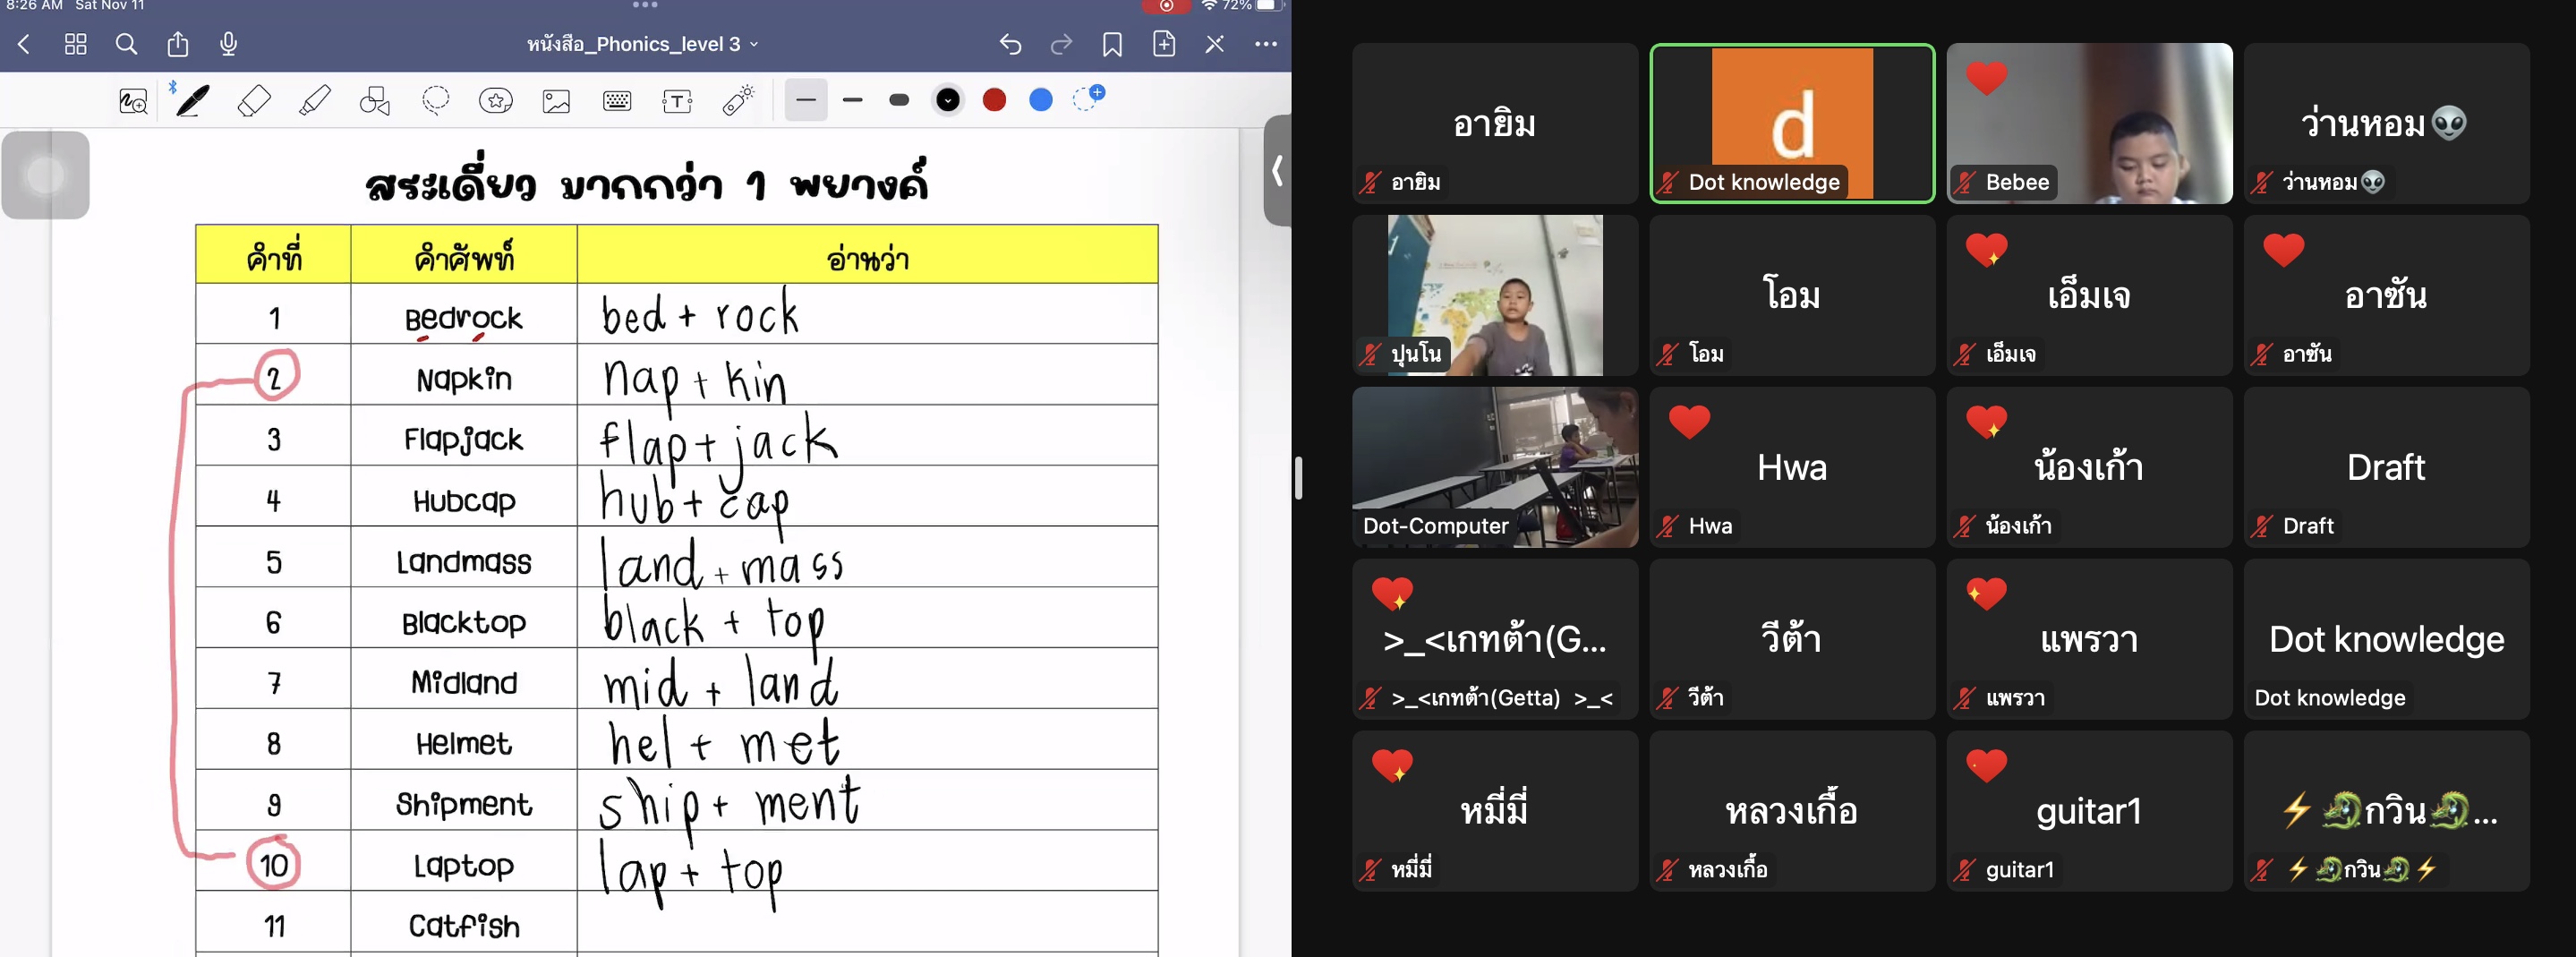 8:26 AM Sat Nov 11
72%
หนังสือ_Phonics_level 3
สระเดี่ยว มากกว่า 1 พยางค์
คำที่ คำศัพท์ อ่านว่า
1 Bedrock bed + rock
2 Napkin nap + kin
3 Flapjack flap + jack
4 Hubcap hub + cap
5 Landmass land + mass
6 Blacktop black + top
7 Midland mid + land
8 Helmet hel + met
9 Shipment ship + ment
10 Laptop lap + top
11 Catfish
อายิม
อายิม
d
Dot knowledge
Bebee
ว่านหอม👽
ว่านหอม👽
ปุนโน
โอม
โอม
เอ็มเจ
เอ็มเจ
อาซัน
อาซัน
Dot-Computer
Hwa
Hwa
น้องเก้า
น้องเก้า
Draft
Draft
>_<เกทต้า(G...
>_<เกทต้า(Getta) >_<
วีต้า
วีต้า
แพรวา
แพรวา
Dot knowledge
Dot knowledge
หมี่มี่
หมี่มี่
หลวงเกื้อ
หลวงเกื้อ
guitar1
guitar1
⚡🐉กวิน🐉...
⚡🐉กวิน🐉⚡